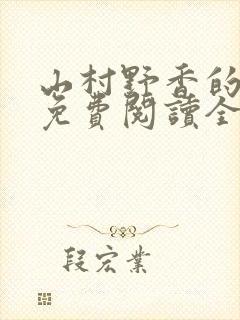 山村野香的
免費閱讀全
段宏業